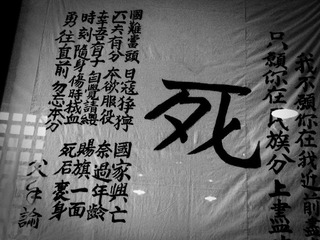 我不願你在我近前盡
只願你在民族分上盡
死
國難當頭 日寇猙獰 國家興亡
匹夫有分 本欲服役 奈過年齡
幸吾有子 自覺請纓 賜旗一面
時刻隨身 傷時拭血 死后裹身
勇往直前 勿忘本分
父手諭